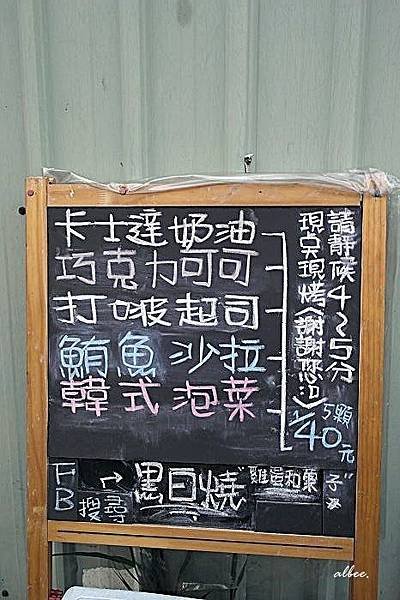 卡士達奶油
巧克力可可
打啵起司
鮪魚沙拉
韓式泡菜
請靜候4～5分
現点現烤(謝謝您!)
5顆
40元
FB
搜尋
黑日燒
雞蛋和菓子
albee.